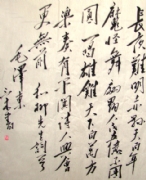 長夜難明赤縣天百年
魔怪舞翩躚人民五億不團
圓一唱雄雞天下白萬方
樂奏有于闐詩人興會
更無前 和柳先生
毛澤東